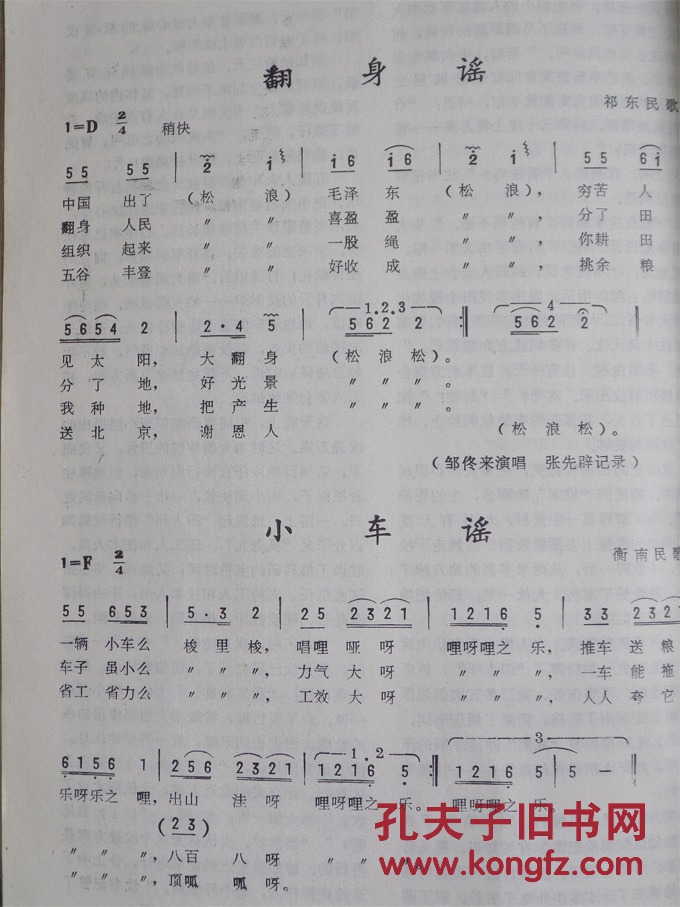 翻身谣
祁东民歌
1=D 2/4 稍快
5 5 5 5 | 2 i | i 6 i 6 | 2 i | 5 5 6 i |
中国 出了 (松 浪) 毛泽 东 (松 浪), 穷苦 人
翻身 人民 〃 〃 喜盈 盈 〃 〃, 分了 田
组织 起来 〃 〃 一股 绳 〃 〃, 你耕 田
五谷 丰登 〃 〃 好收 成 〃 〃, 挑余 粮
1.2.3 4
5654 2 | 2·4 5 | 5622 2 :‖ 5622 2 |
见太 阳, 大翻身 (松浪松)。
分了 地, 好光景 〃 〃 〃。
我种 地, 把产生 〃 〃 〃。
送北 京, 谢恩人 (松浪松)。
(邹佟来演唱 张先辟记录)
小车谣
衡南民歌
1=F 2/4
5 5 6 5 3 | 5·3 2 | 2 5 2321 | 1216 5 | 3 3 2321 |
一辆 小车么 梭里梭, 唱哩 哑 呀 哩呀哩之 乐, 推车 送 粮
车子 虽小么 〃 〃 〃, 力气 大 呀 〃 〃 〃, 一车 能 拖
省工 省力么 〃 〃 〃, 工效 大 呀 〃 〃 〃, 人人 夸 它
1.2 3
6156 1 | 256 2321 | 1216 5 :‖ 1216 5 | 5 — |
乐呀乐之 哩, 出山 洼 呀 哩呀哩之 乐。 哩呀哩之 乐。
(23)
〃 〃 〃, 八百 八 呀 〃 〃
〃 〃 〃, 顶呱 呱 呀。
孔夫子旧书网
www.kongfz.com